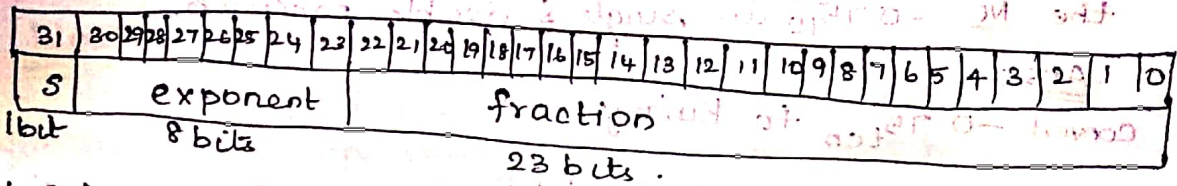 31 30 29 28 27 26 25 24 23 22 21 20 19 18 17 16 15 14 13 12 11 10 9 8 7 6 5 4 3 2 1 0
S exponent fraction
1bit 8 bits 23 bits.